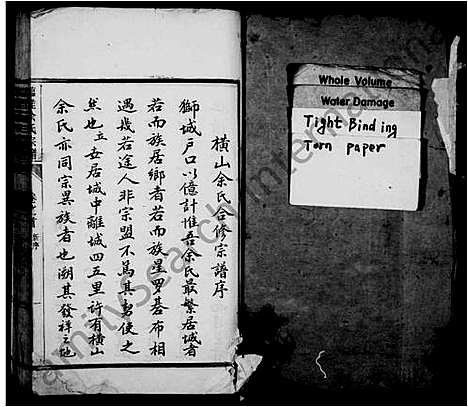 橫山余氏合修宗譜序
獅城戶口以億計惟吾余氏最繁居城者
若而族居鄉者若而族星羅碁布相
遇幾若途人非宗盟不篤其勢使之
然也立世居城中離城四五里許有橫山
余氏亦同宗異族者也溯其發祥之地
余氏宗譜
Whole Volume
Water Damage
Tight Binding
Torn paper
familysearch international